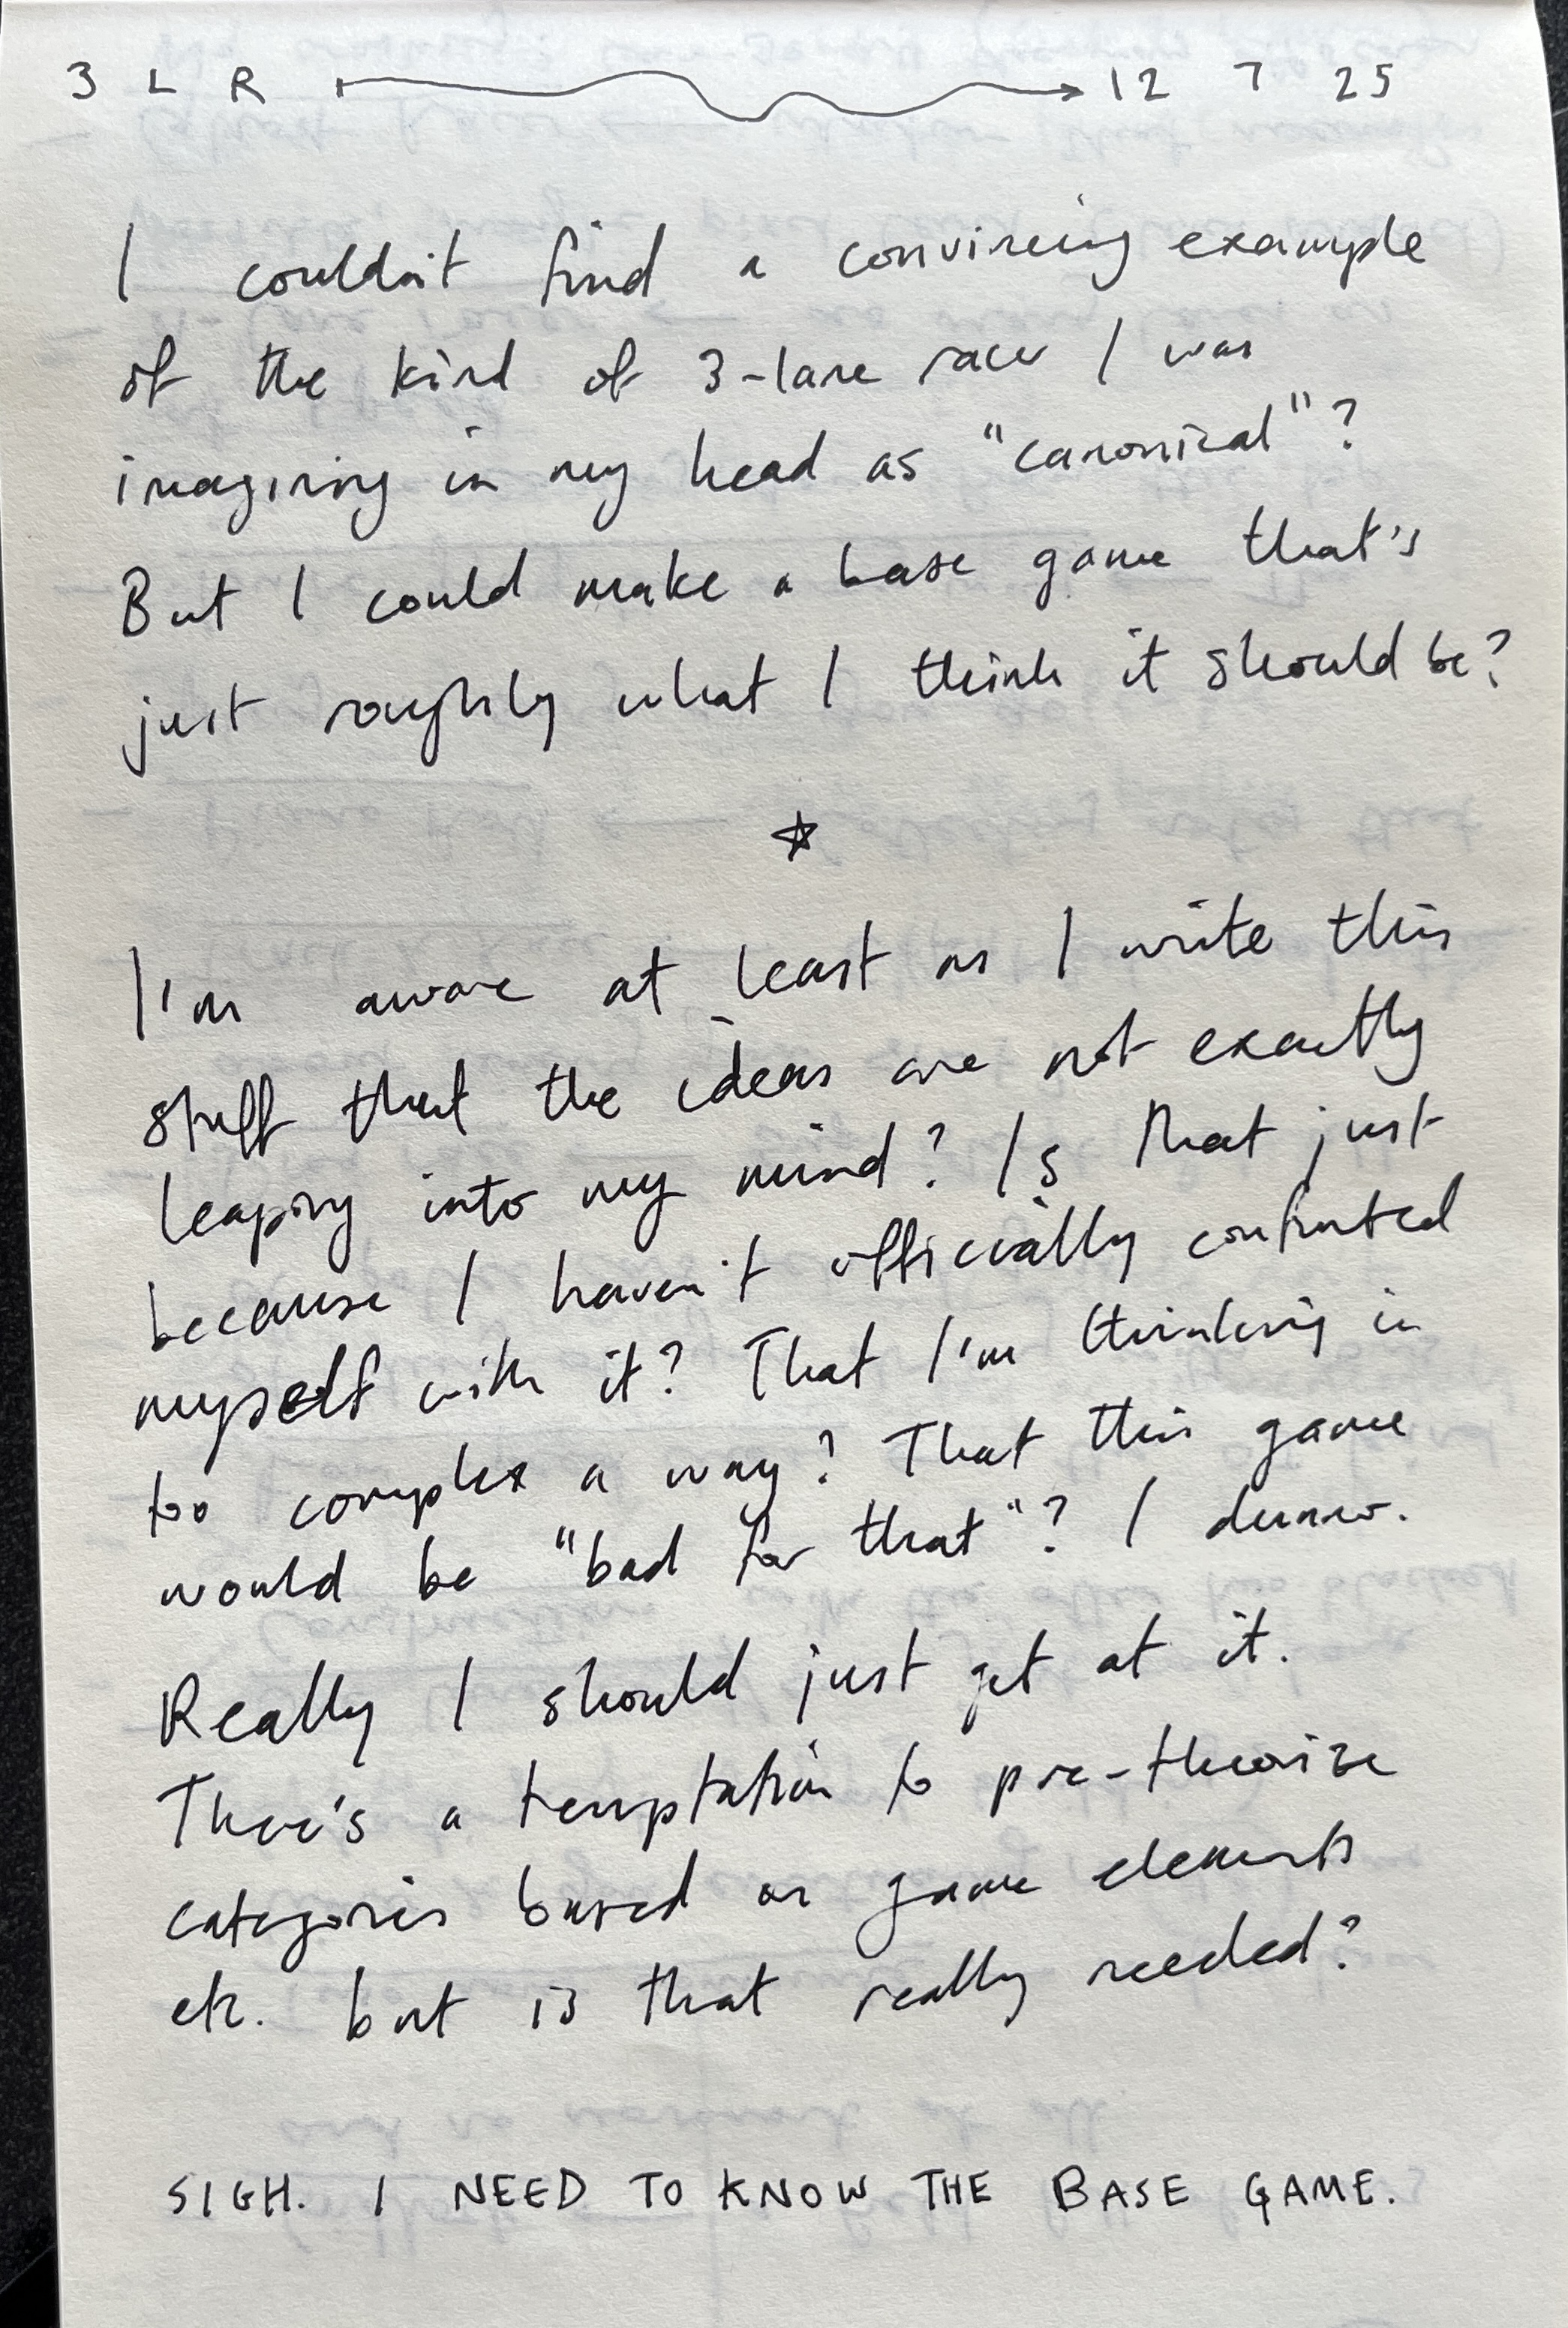 3 L R 12 7 25
I couldn't find a convincing example
of the kind of 3-lane racer I was
imagining in my head as "canonical"?
But I could make a base game that's
just roughly what I think it should be?
I'm aware at least as I write this
stuff that the ideas are not exactly
leaping into my mind? Is that just
because I haven't officially confronted
myself with it? That I'm thinking in
too complex a way? That this game
would be "bad for that"? I dunno.
Really I should just get at it.
There's a temptation to pre-theorize
categories based on game elements
etc. but is that really needed?
SIGH. I NEED TO KNOW THE BASE GAME.